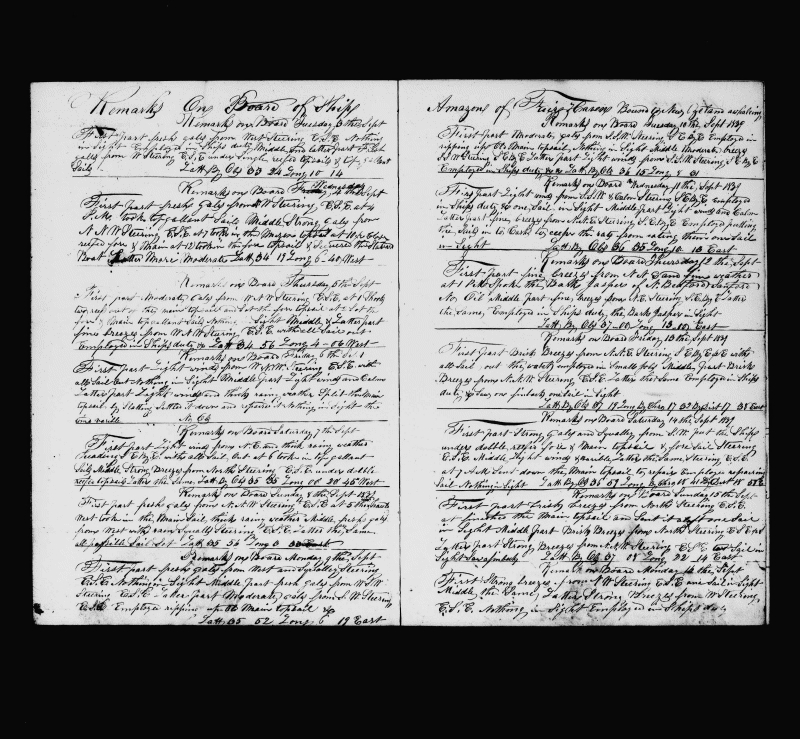 Remarks On Board of Ship
Remarks on Board Tuesday 3th Sept
First part fresh gales from West Steering E.S.E. Nothing
in Sight Employed in Ships duty Middle and latter part Fresh
gales from W Steering E.S.E under Single reefed topsails &
Sails Latt By Obs 33 24 Long 10 14
Remarks on Board Wednesday 4th Sept
First part fresh gales from W Steering E.S.E at 4
P.M. took in Gallant Sails Middle Strong gales from
N.N.W Steering E.S.E at 7 took in the Mizen topsail at 10 close
reefed fore & Main at 12 took in the fore topsail & Secured the
Boat Latter More Moderate Latt 34 17 Long 6-40 West
Remarks on Board Thursday 5th Sept
First part Moderate gales from W.N.W Steering E.S.E. at 1 Shook
two reefs out of the main topsail and Set the fore topsail at 2 Set the
fore & Main topgallant Sails Nothing in Sight Middle & Latter part
fine breezes from W.N.W Steering E.S.E with all Sail out
Employed in Ships duty Latt 34 56 Long 4-06 West
Remarks on Board Friday 6th Sept
First part Light winds from W.N.W. Steering E.S.E. with
all Sail out Nothing in Sight Middle part Light winds and Calm
Latter part Light winds and thick rainy weather Split the Main
topsail by Slatting Latter it down and repaired it Nothing in Sight the
No Obs
Remarks on Board Saturday 7th Sept
First part Light wind from N.E. and thick rainy weather
heading S.E by E with all Sail out at 6 took in topgallant
Sails Middle Strong Breezes from North Steering E.S.E under doble
reefed topsails Latter the Same Latt By Obs 35 35 Long 00 28 45 West
Remarks on Board Sunday 8 the Sept 1839
First part fresh gales from N.N.W. Steering E.S.E. at 5
West took in the Main Sail thick rainy weather Middle fresh gales
from West with rain Squally Steering E.S.E. Latter the Same
all possible Sail Set Latt 35 36 Long 3
Remarks on Board Monday 9 the Sept
First part fresh gales from West and Squally Steering
E.S.E. Nothing in Sight Middle part fresh gales from W.S.W
Steering E.S.E. Latter part Moderate gales from S.W Steering
E.S.E. Employed ripping up Old Main topsail
Latt 35 52 Long 6 19 East
Amazon of Fairhaven Bound on New Zealand whaling
Remarks on Board Tuesday 10 the Sept 1839
First part Moderate gales from S.S.W. Steering S.E by E Employed in
ripping up Old Main topsail Nothing in Sight Middle Moderate breezes
S.S.W Steering S.E by E Latter part Light winds from S.S.W Steering S.E by E
Employed in Ships duty Latt By Obs 36 15 Long 8 01
Remarks on Board Wednesday 11 the Sept 1839
First part Light winds from S.S.W & Calm Steering S.E by E employed
in Ships duty one Sail in Sight Middle part Light winds and Calm
Latter part fine breezes from N.N.E Steering S.E by E Employed putting
the Sail in to Casks to keep the rats from eating them one Sail
in Sight Latt By Obs 36 35 Long 10 13 East
Remarks on Board Thursday 12 the Sept
First part fine breezes from N.N. and fine weather
at 1 P.M. Spoke the Bark Jasper of N Bedford
No Oil Middle part fine breezes from N.E. Steering S.E by E Latter
the Same, Employed in Ships duty the Bark Jasper in Sight
Latt By Obs 37-00 Long 13 00 East
Remarks on Board Friday 13 the Sept 1839
First part Brisk Breezes from N.N.E. Steering S E by E & E with
all Sail out the watch employed in Small jobs Middle part Brisk
Breezes from N.N.W. Steering E.S.E. Latter the Same Employed in Ships
duty & Saw one finback in Sight
Latt By Obs 37 19 Long by Chro 17 32 By Dist 17 31 East
Remarks on Board Saturday 14 the Sept 1839
First part Strong gales and Squally from S.W put the Ships
under doble reefed fore & Main topsail & fore Sail Steering
E.S.E. Middle Light winds variable Latter the Same Steering E.S.E
at 7 A.M. Sent down the Main topsail to repair Employed repairing
Sail Nothing in Sight Latt By Obs 36 57 Long by Chro 18 41 By Dist 18 58 E
Remarks on Board Sunday 15 the Sept
First part brisk breezes from North Steering E.S.E.
at finished the Main topsail and Sent it aloft one Sail
in Sight Middle part Brisk Breezes from North Steering E.S.E.
Latter part Strong Breezes from N.N.W. Steering E.S.E. Sail in
Sight Saw finbacks Latt By Obs 37 01 Long 22 14 East
Remarks on Board Monday 16 the Sept
First Strong breezes from N.W Steering E.S.E one Sail in Sight
Middle the Same, Latter Strong Breezes from W Steering
E.S.E. Nothing in Sight Employed in Ships duty